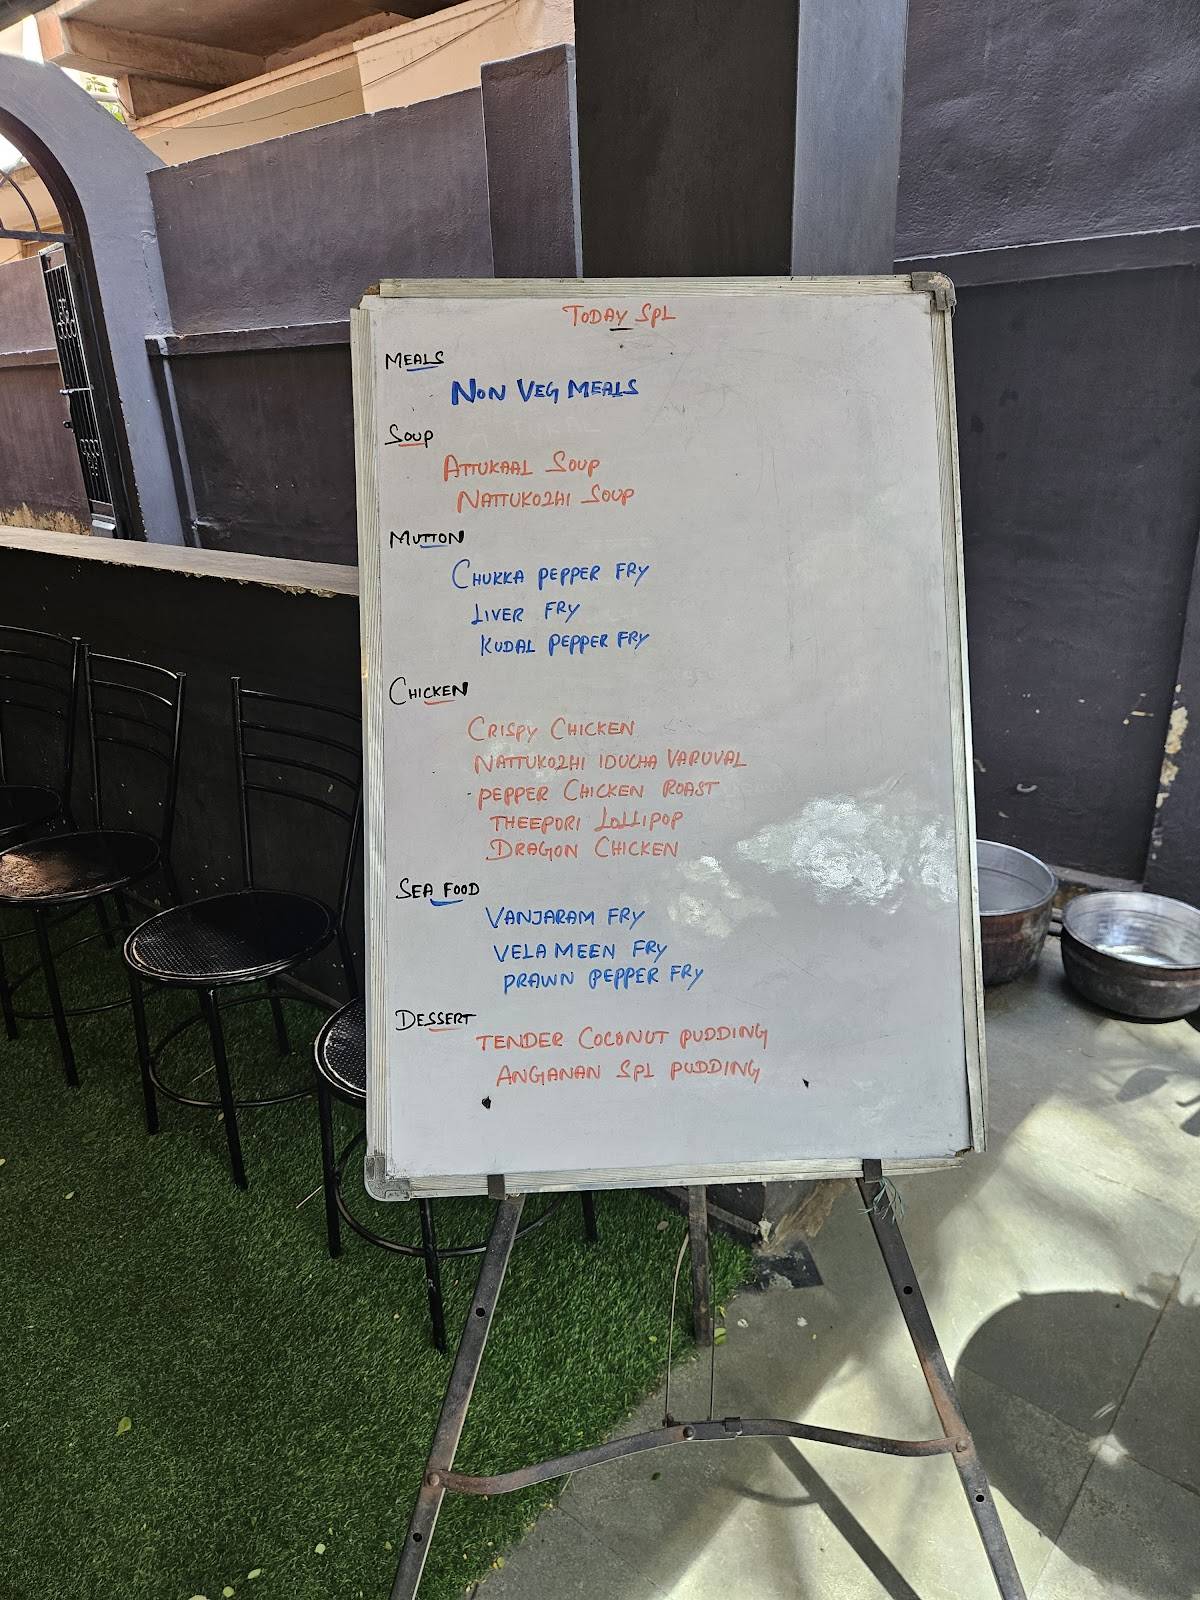 TODAY SPL
MEALS
NON VEG MEALS
SOUP
ATTUKAAL SOUP
NATTUKOZHI SOUP
MUTTON
CHUKKA PEPPER FRY
LIVER FRY
KUDAL PEPPER FRY
CHICKEN
CRISPY CHICKEN
NATTUKOZHI IDUCHA VARUVAL
PEPPER CHICKEN ROAST
THEEPORI LOLLIPOP
DRAGON CHICKEN
SEA FOOD
VANJARAM FRY
VELA MEEN FRY
PRAWN PEPPER FRY
DESSERT
TENDER COCONUT PUDDING
ANGANAN SPL PUDDING